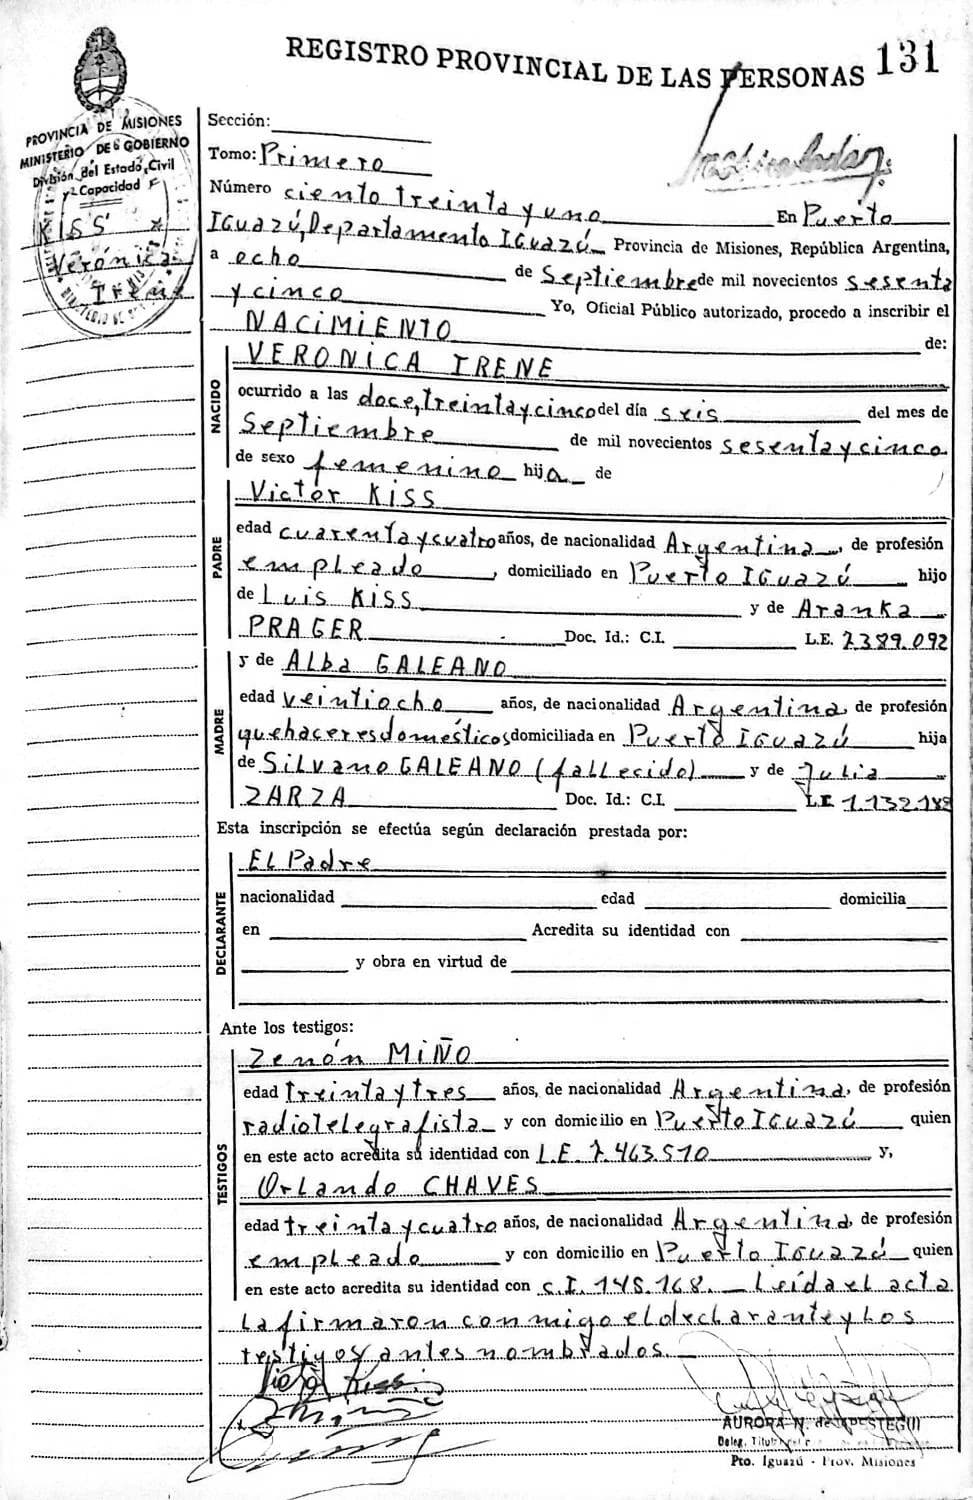 REGISTRO PROVINCIAL DE LAS PERSONAS 131
PROVINCIA DE MISIONES
MINISTERIO DE GOBIERNO
División del Estado Civil
y Capacidad
KISS
Verónica
Irene
Sección:
Tomo: Primero
Número ciento treinta y uno En Puerto
Iguazú, Departamento Iguazú Provincia de Misiones, República Argentina,
a ocho de Septiembre de mil novecientos sesenta
y cinco Yo, Oficial Público autorizado, procedo a inscribir el
NACIMIENTO de:
NACIDO
VERONICA IRENE
ocurrido a las doce, treinta y cinco del día seis del mes de
Septiembre de mil novecientos sesenta y cinco
de sexo femenino hija de
PADRE
Victor KISS
edad cuarenta y cuatro años, de nacionalidad Argentina, de profesión
empleado, domiciliado en Puerto Iguazú hijo
de Luis KISS y de Aranka
PRAGER Doc. Id.: C.I. L.E. 7389.092
MADRE
y de Alba GALEANO
edad veintiocho años, de nacionalidad Argentina, de profesión
quehaceres domésticos domiciliada en Puerto Iguazú hija
de Silvano GALEANO (fallecido) y de Julia
ZARZA Doc. Id.: C.I. L.E. 1.132.189
Esta inscripción se efectúa según declaración prestada por:
DECLARANTE
El Padre
nacionalidad edad domicilia
en Acredita su identidad con
y obra en virtud de
Ante los testigos:
TESTIGOS
Zenón MIÑO
edad treinta y tres años, de nacionalidad Argentina, de profesión
radiotelegrafista y con domicilio en Puerto Iguazú quien
en este acto acredita su identidad con L.E. 7.463.510 y,
Orlando CHAVES
edad treinta y cuatro años, de nacionalidad Argentina, de profesión
empleado y con domicilio en Puerto Iguazú quien
en este acto acredita su identidad con C.I. 148.168. Leída el acta
la firmaron conmigo el declarante y los
testigos antes nombrados.
Victor Kiss
AURORA N. de
Deleg. Titular
Pto. Iguazú - Prov. Misiones